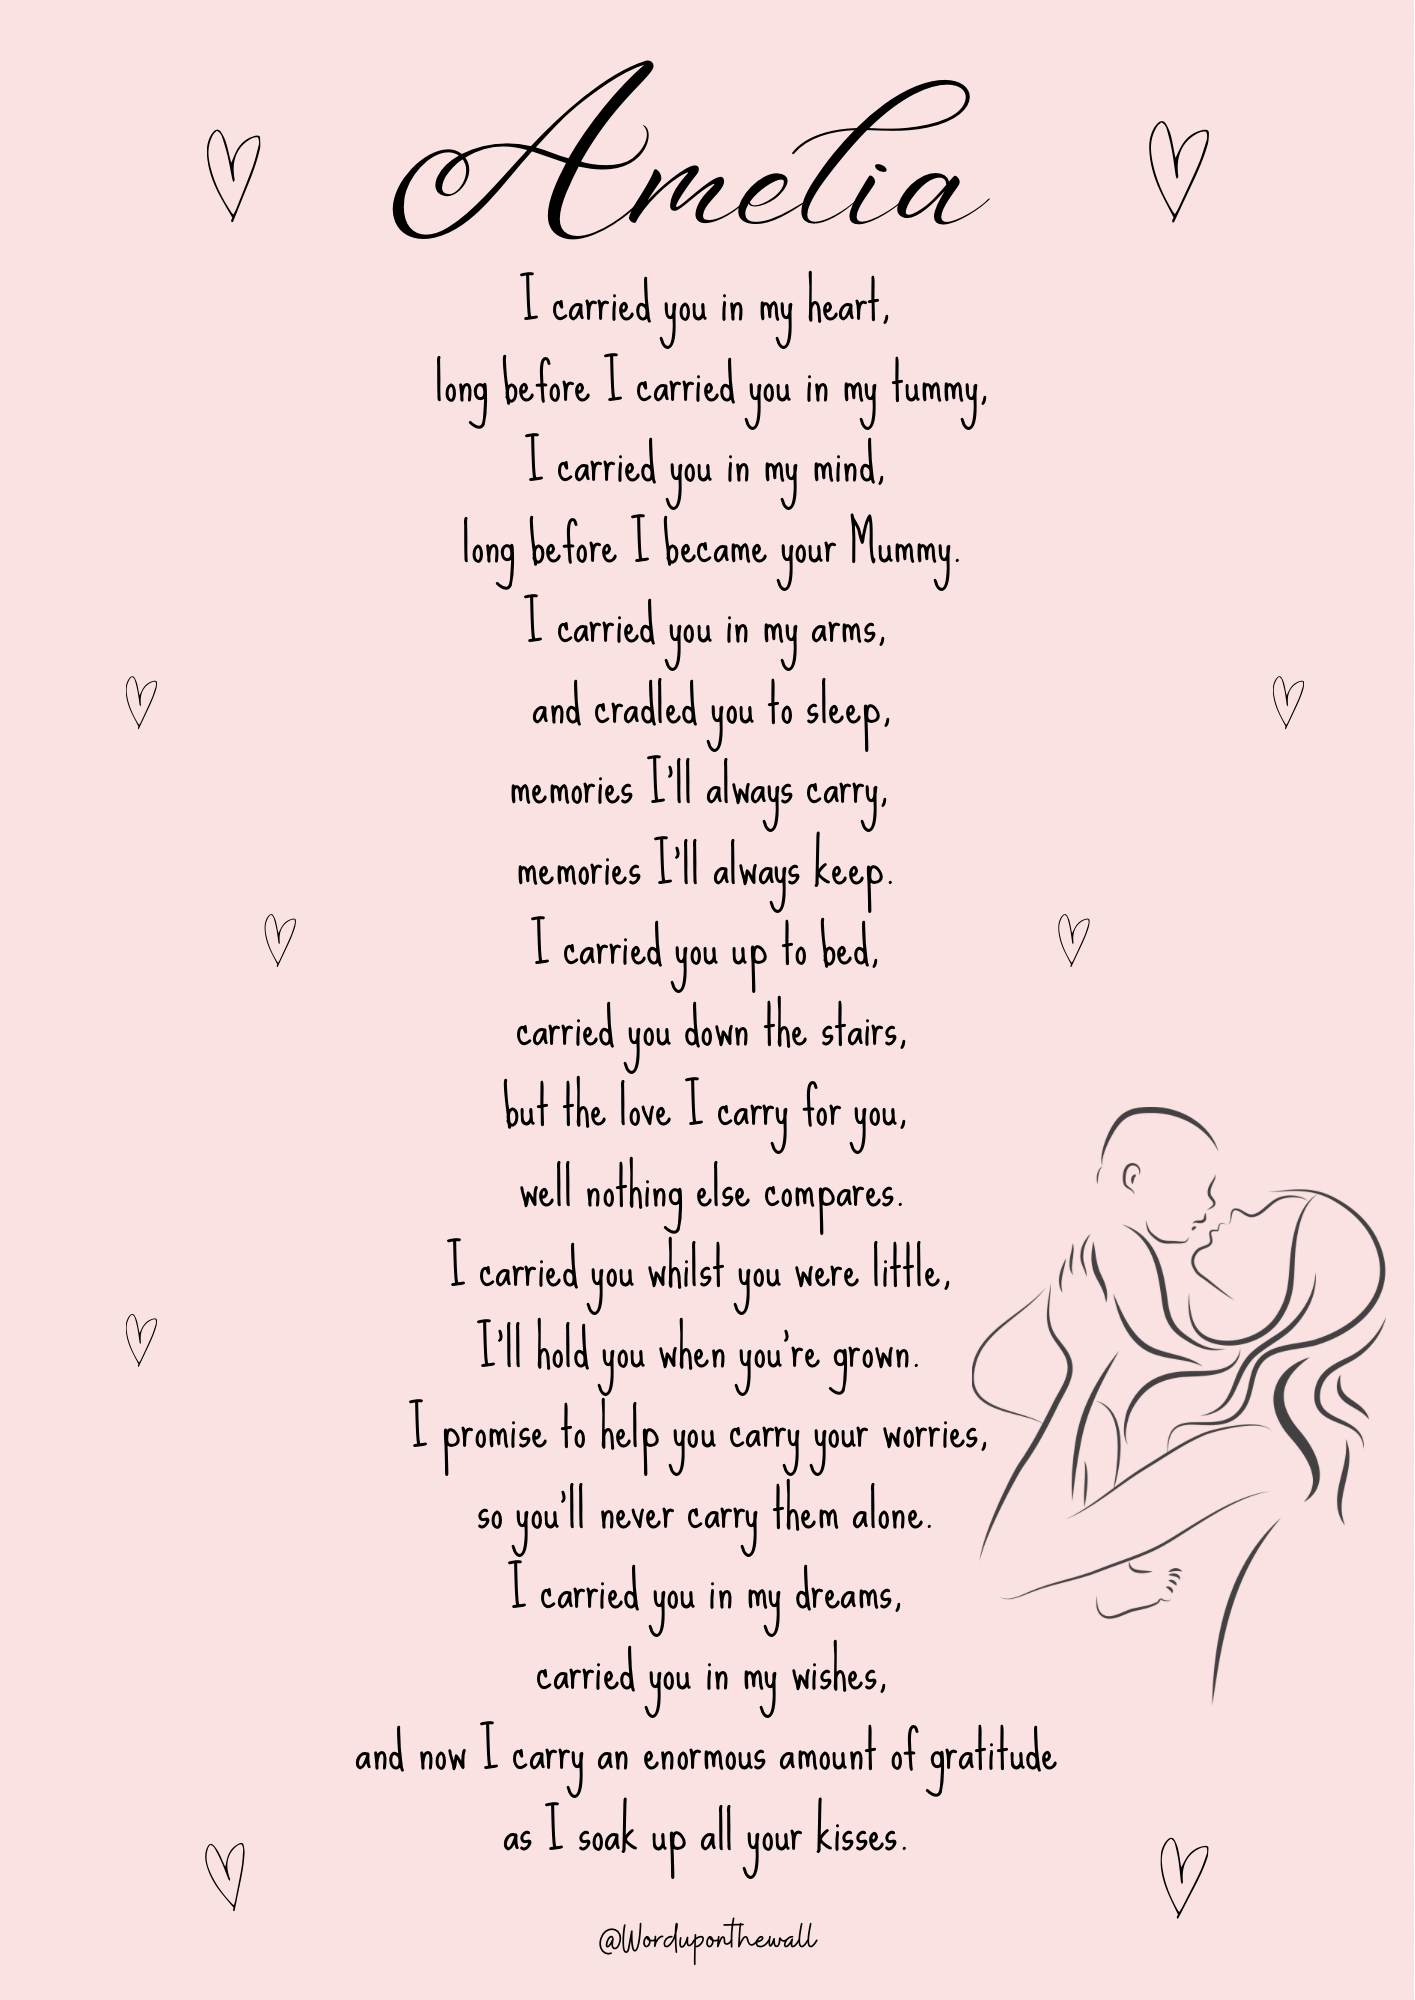 Amelia
I carried you in my heart,
long before I carried you in my tummy,
I carried you in my mind,
long before I became your Mummy.
I carried you in my arms,
and cradled you to sleep,
memories I'll always carry,
memories I'll always keep.
I carried you up to bed,
carried you down the stairs,
but the love I carry for you,
well nothing else compares.
I carried you whilst you were little,
I'll hold you when you're grown.
I promise to help you carry your worries,
so you'll never carry them alone.
I carried you in my dreams,
carried you in my wishes,
and now I carry an enormous amount of gratitude
as I soak up all your kisses.
@Worduponthewall